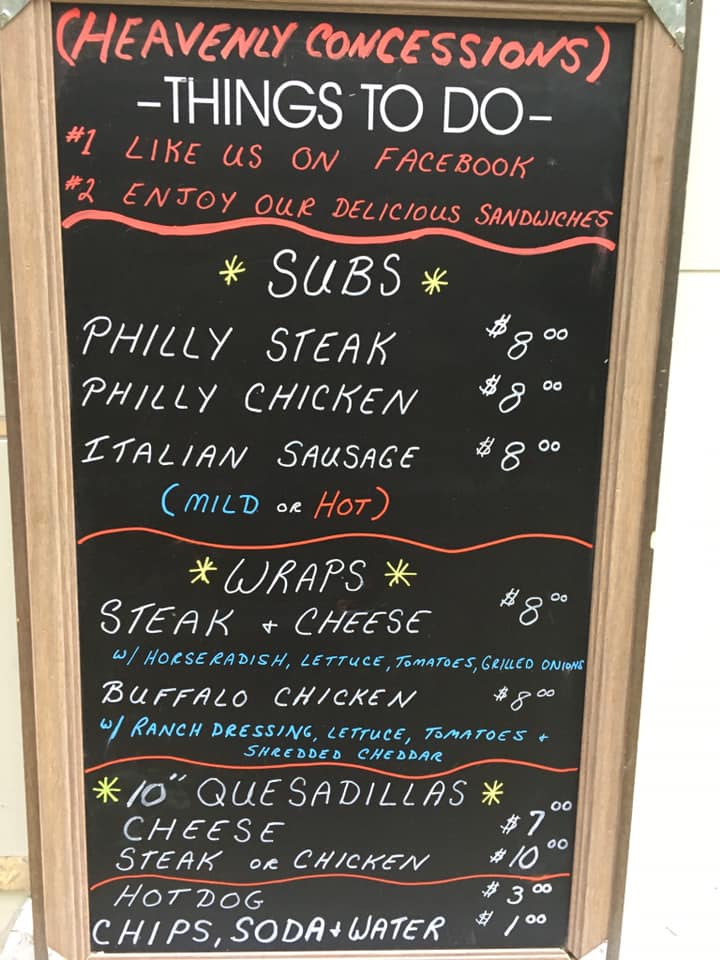 (HEAVENLY CONCESSIONS)
-THINGS TO DO-
#1 LIKE US ON FACEBOOK
#2 ENJOY OUR DELICIOUS SANDWICHES
* SUBS *
PHILLY STEAK $8.00
PHILLY CHICKEN $8.00
ITALIAN SAUSAGE $8.00
(MILD OR HOT)
* WRAPS *
STEAK + CHEESE $8.00
W/ HORSERADISH, LETTUCE, TOMATOES, GRILLED ONIONS
BUFFALO CHICKEN $8.00
W/ RANCH DRESSING, LETTUCE, TOMATOES +
SHREDDED CHEDDAR
* 10" QUESADILLAS *
CHEESE $7.00
STEAK OR CHICKEN $10.00
HOT DOG $3.00
CHIPS, SODA + WATER $1.00